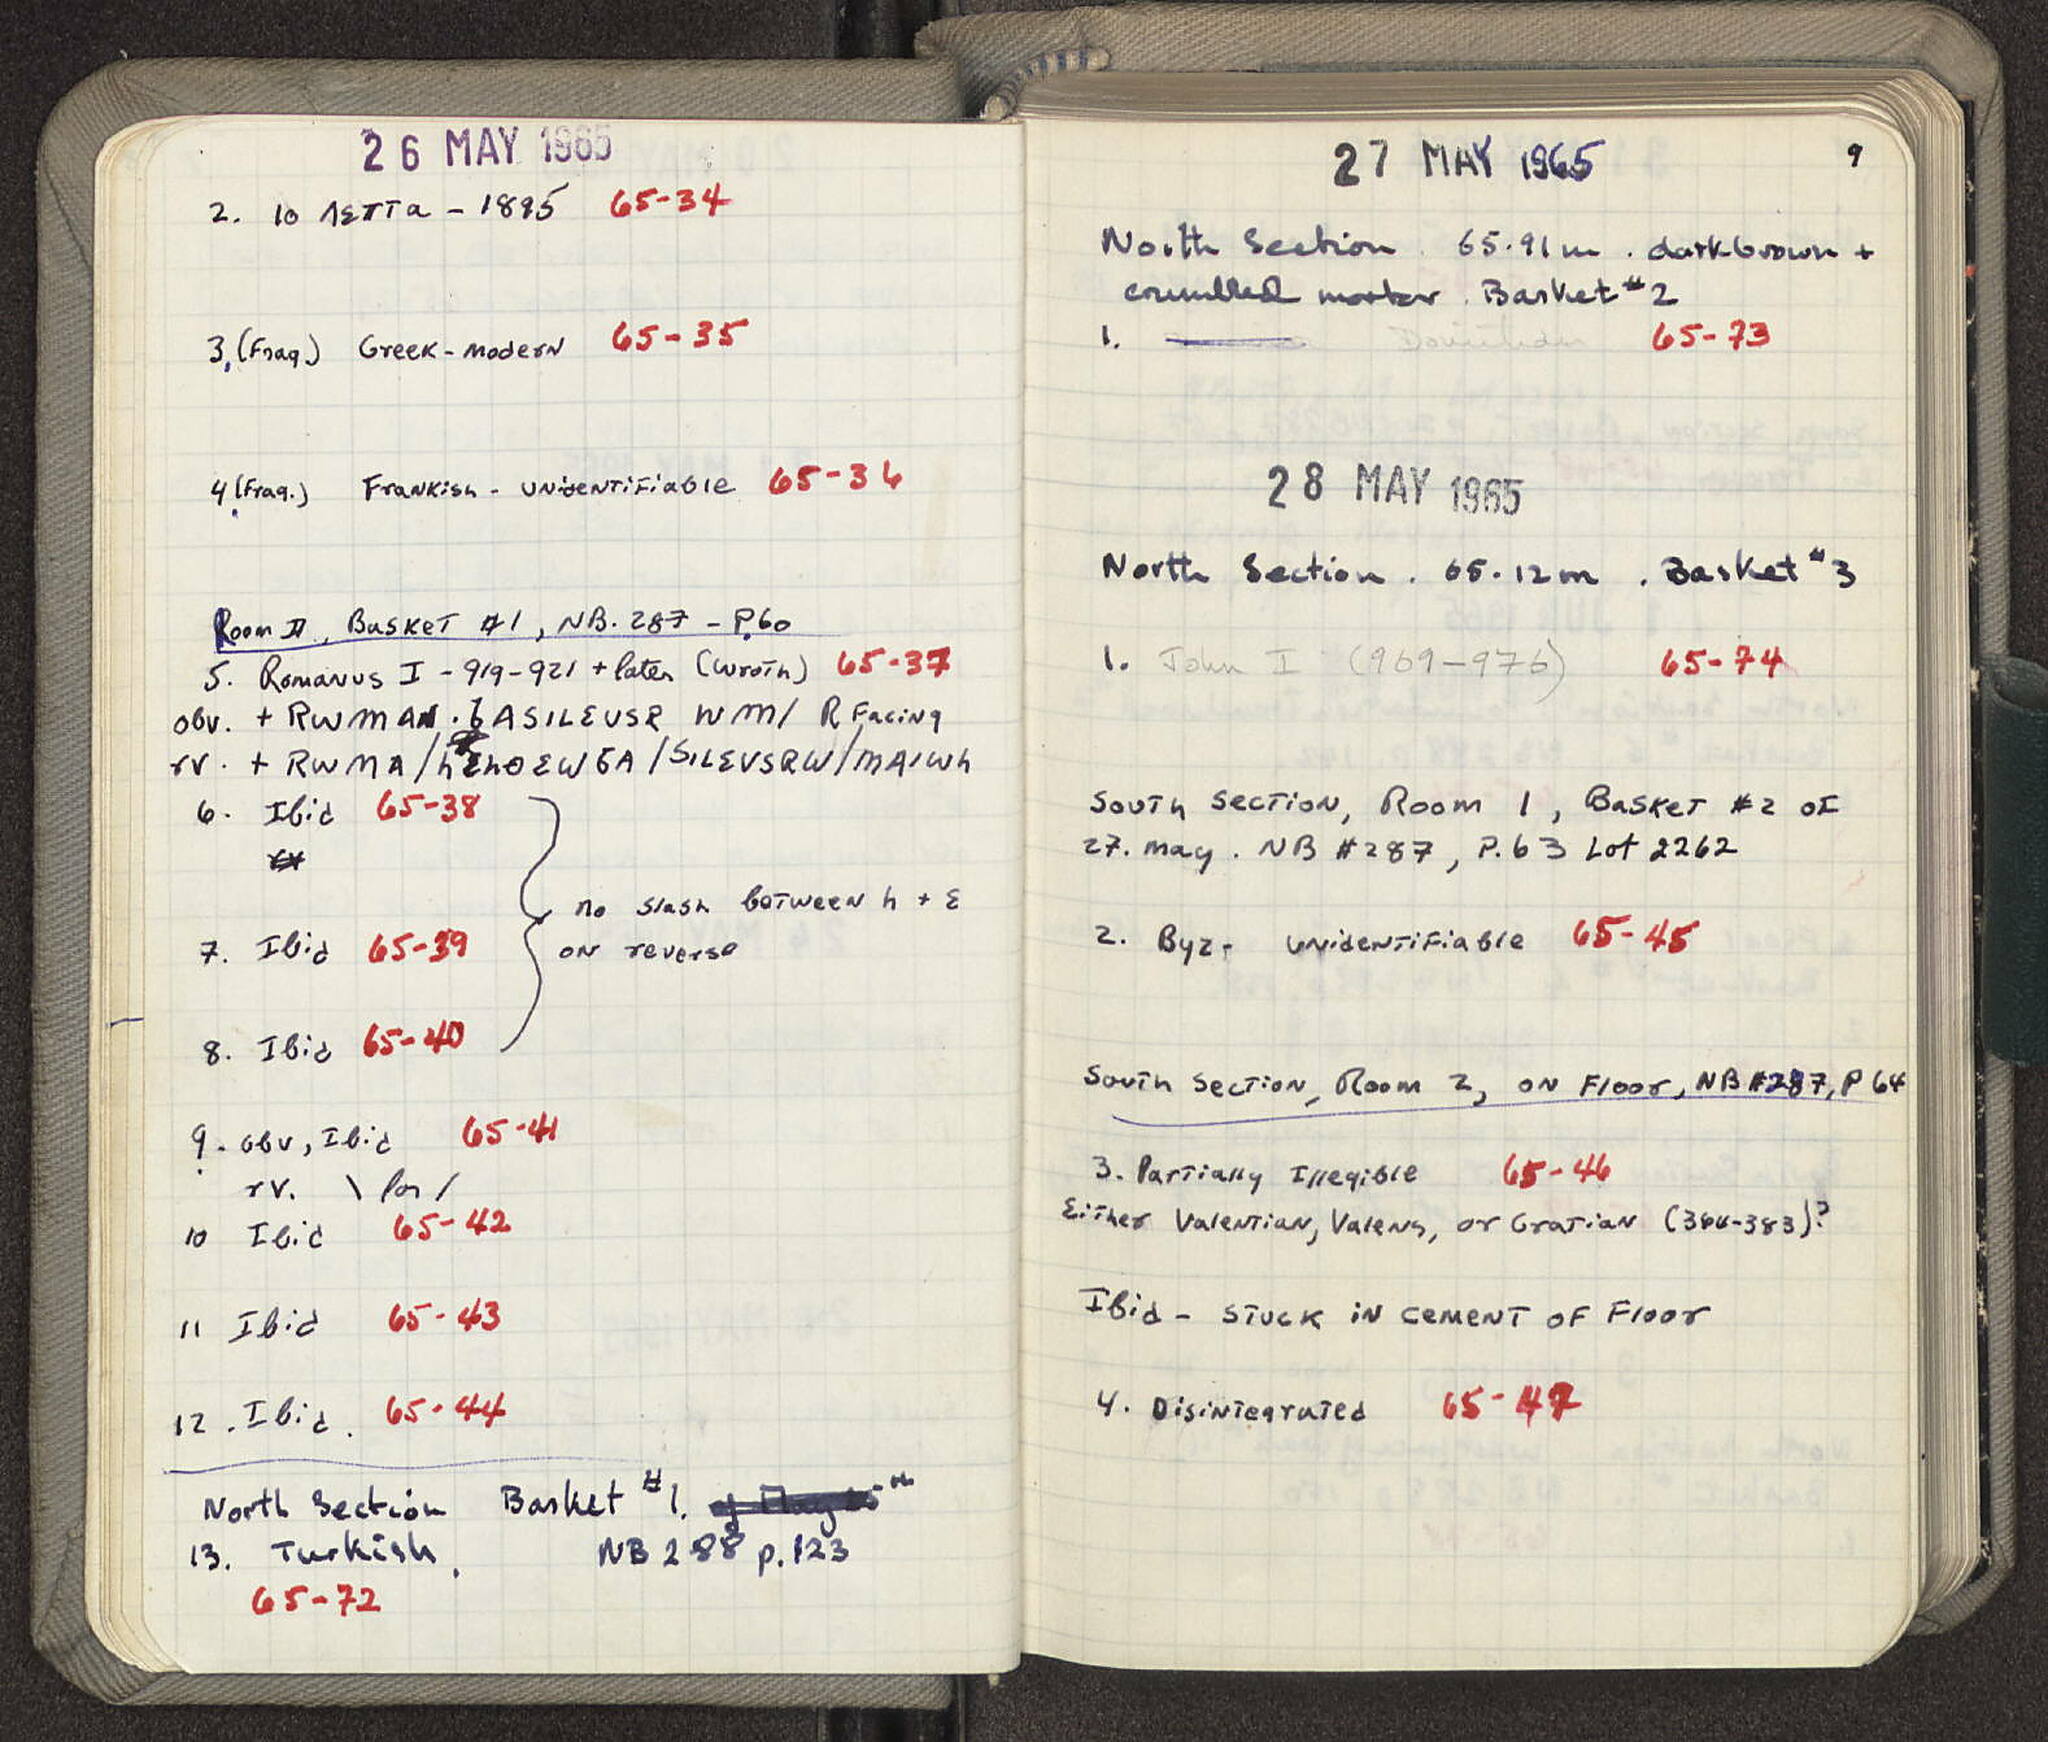 26 MAY 1965
2. 10 ΛΕΠΤα - 1895 65-34
3. (Frag.) Greek - modern 65-35
4 (Frag.) Frankish - unidentifiable 65-36
Room II, Basket #1, NB. 287 - P.60
5. Romanus I - 919-921 + later (Wroth) 65-37
obv. + RWMAN . bASILEVSR WM/ R Facing
rv. + RWMA/hΕhOEWbA/SILEVSRW/MAIWh
6. Ibid 65-38
no slash between h + ε
on reverse
7. Ibid 65-39
8. Ibid 65-40
9. obv, Ibid 65-41
rv. \ for /
10 Ibid 65-42
11 Ibid 65-43
12. Ibid. 65-44
North Section Basket #1.
13. Turkish. NB 288 p. 123
65-72
27 MAY 1965 9
North Section. 65.91m. dark brown +
crumbled mortar. Basket #2
1. Domitian 65-73
28 MAY 1965
North Section. 65.12m. Basket #3
1. John I (969-976) 65-74
South Section, Room 1, Basket #2 of
27. may. NB #287, P.63 Lot 2262
2. Byz- unidentifiable 65-45
South Section, Room 2, on Floor, NB #287, P 64
3. Partially Illegible 65-46
Either Valentian, Valens, or Gratian (364-383)?
Ibid - stuck in cement of Floor
4. Disintegrated 65-47